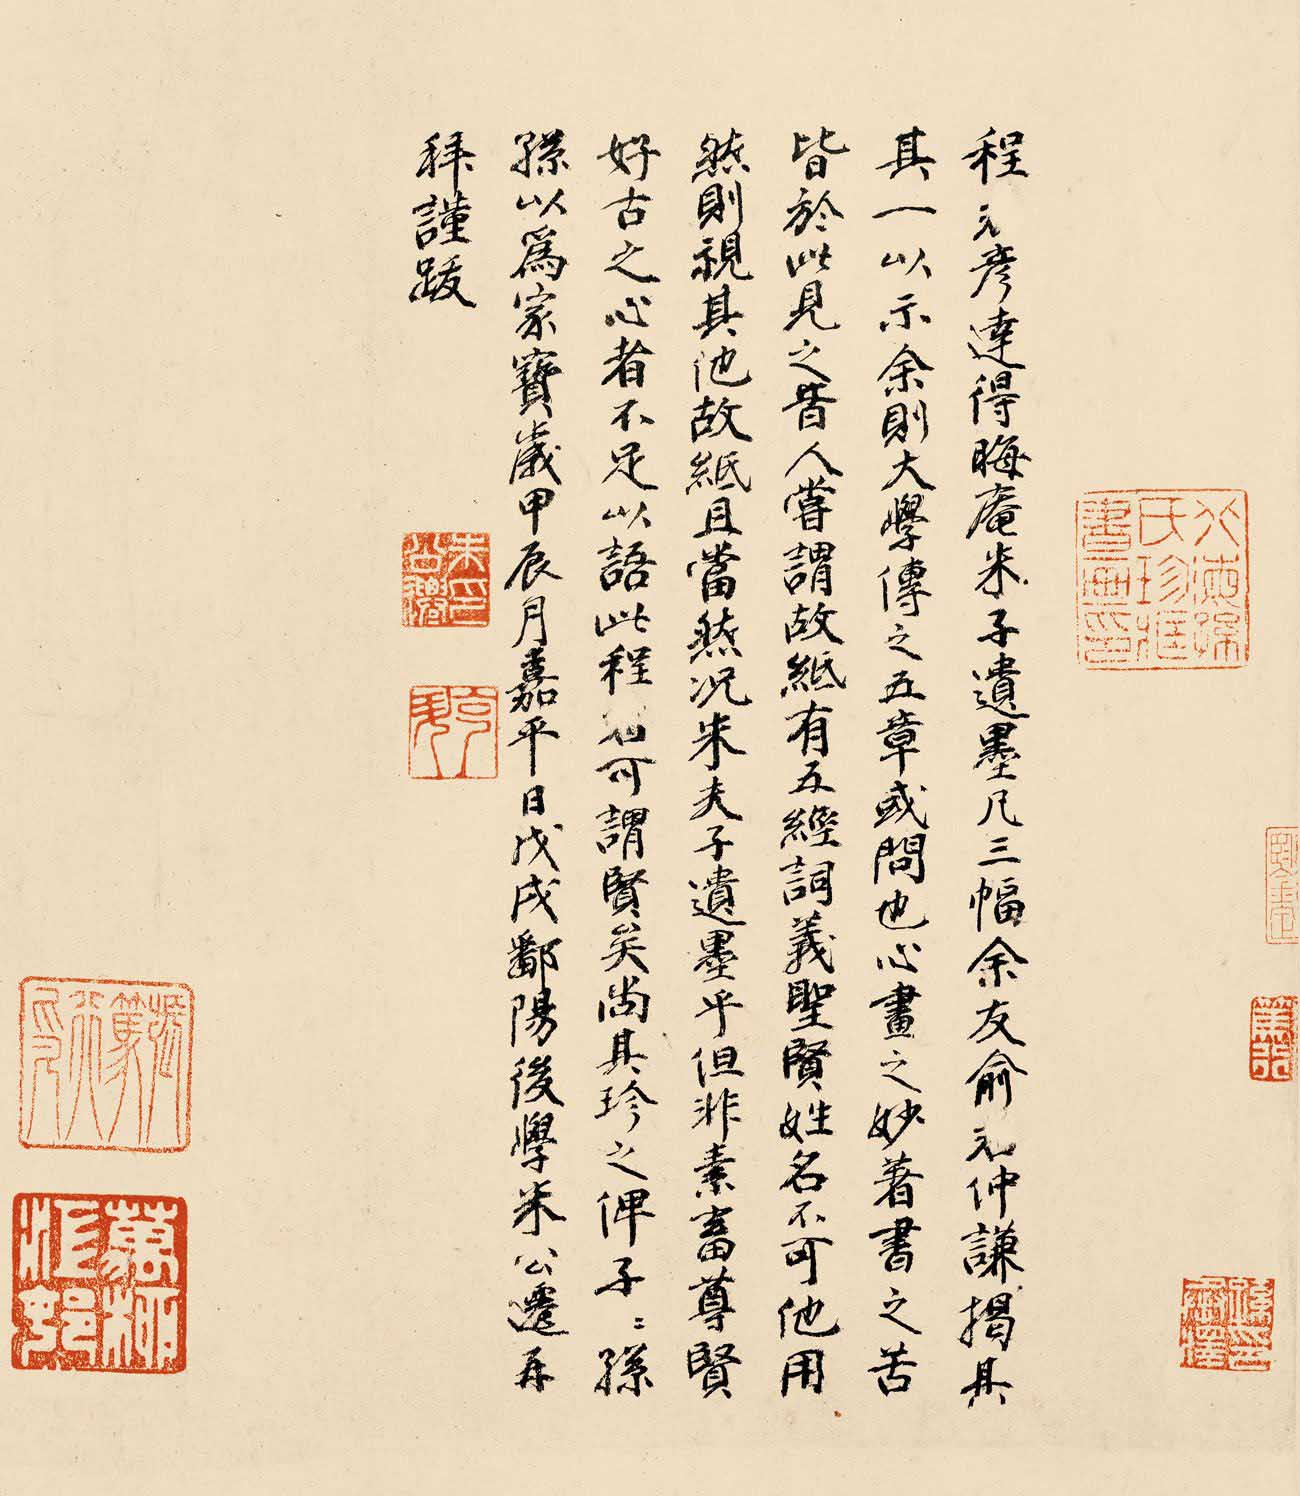 程元彦達得晦庵朱子遺墨凡三幅余友俞元仲謙揭其
其一以示余則大學傳之五章或問也心畫之妙著書之苦
皆於此見之昔人嘗謂故紙有五經詞義聖賢姓名不可他用
然則視其他故紙且當然況朱夫子遺墨乎但非素畜尊賢
好古之心者不足以語此程 可謂賢矣尚其珍之俾子〻孫
孫以為家寶歲甲辰月嘉平日戊戌鄱陽後學朱公遷再
拜謹跋